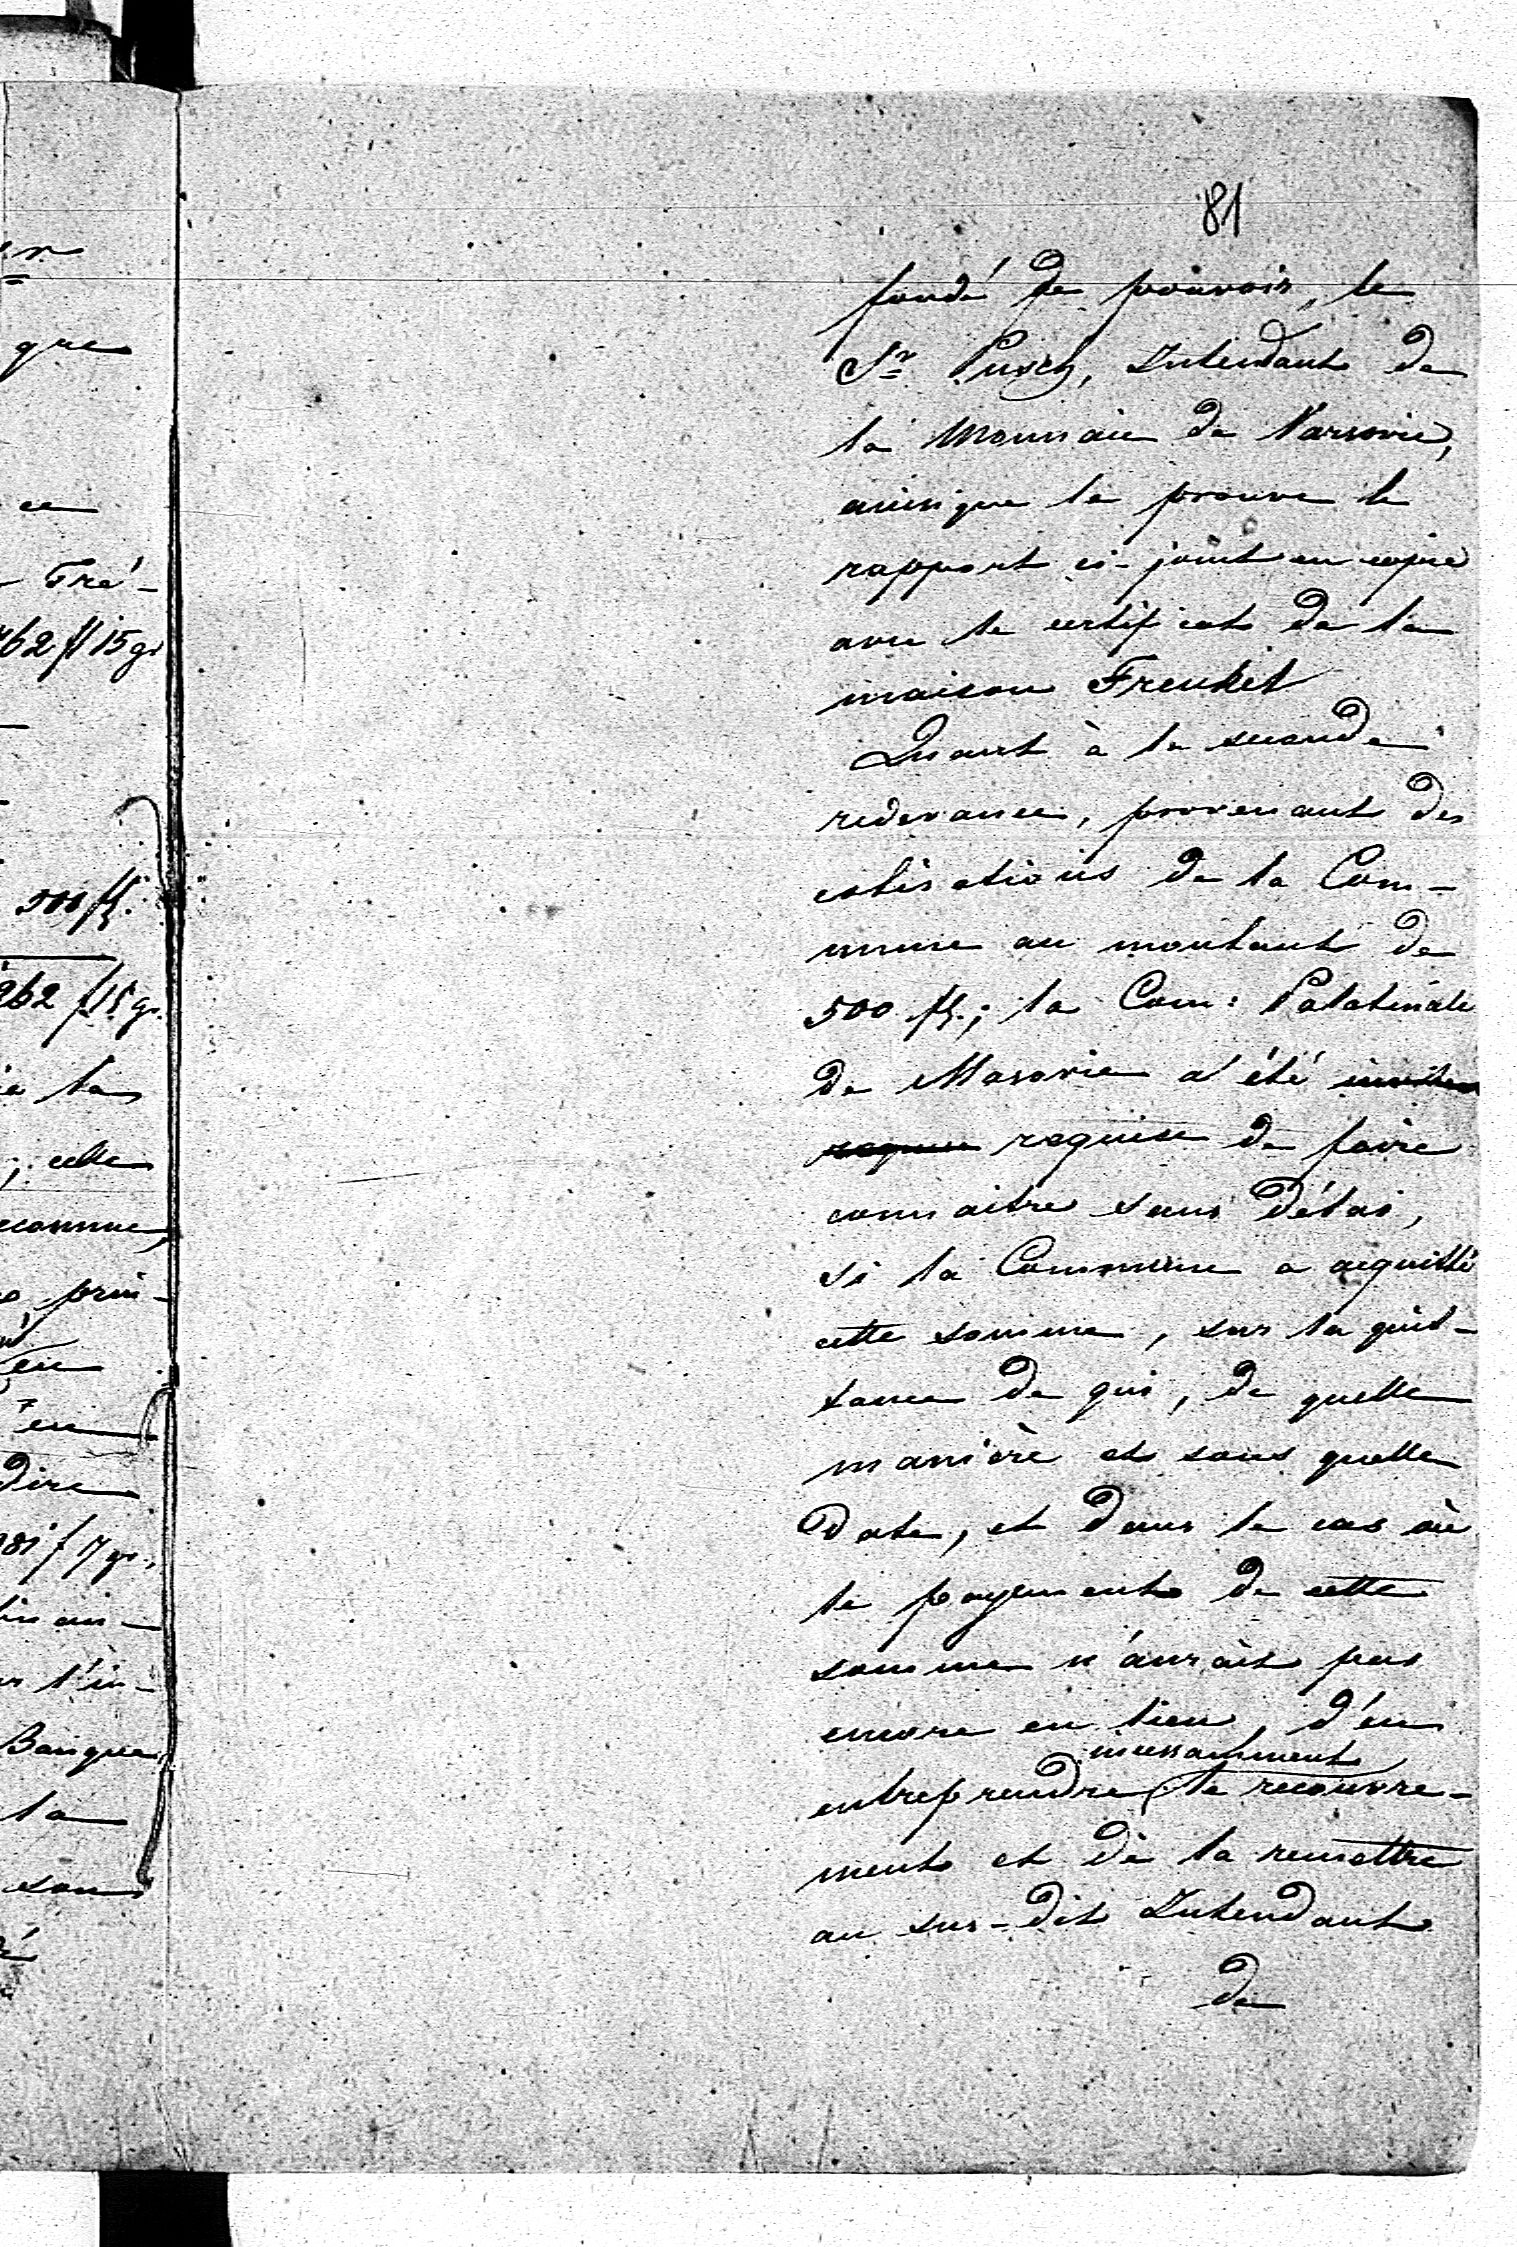 81
fondé de pouvoir, le
Sr Pusch, Intendant de
la Monnaie de Varsovie,
ainsique le prouve le
rapport ci-joint en copie
avec le certificat de la
maison Frenkel
Quant à la seconde
redevance, provenant des
cotisations de la Com-
mune au montant de
500 fl.; la Com: Palatinale
de Masovie a été invitée
requise requise de faire
connaitre sans délai,
si la Commune a acquitté
cette somme, sur la quit-
tance de qui, de quelle
manière et sous quelle
date, et dans le cas où
le payement de cette
somme n'aurait pas
encore eu lieu, d'en
incessamment
entreprendre le recouvre-
ment et de la remettre
au sus-dit Intendant
de
que
ce
Tré-
62 fl 15 gr
500 fl.
262 fl 15 gr.
la
; cette
prin-
en
dire
81 f 7 gr.
Banque
la
sous